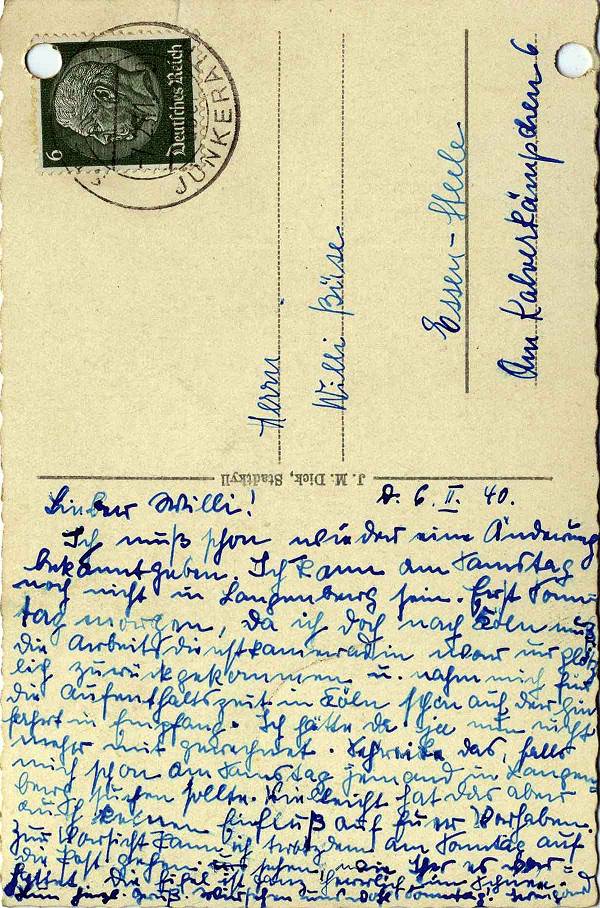 6
Deutsches Reich
JÜNKERA
Herrn
Willi Büse
Essen-Steele
Am Kalverkämpchen 6
J. M. Dick, Stadtkyll
Lieber Willi! D. 6. II. 40.
Ich muß schon wieder eine Änderung
bekanntgeben. Ich kann am Samstag
noch nicht in Langenberg sein. Erst Sonn-
tag morgen, da ich doch nach Köln muß
die Arbeitsdienstkameradin war urplötz
lich zurückgekommen u. nahm mich für
die Aufenthaltszeit in Köln schon auf der Hin
fahrt in Empfang. Ich hätte da ja nun nicht
mehr mit gerechnet. Schreibe das, falls
mich schon am Samstag jemand in Langen
berg suchen sollte. Vielleicht hat das aber
auch keinen Einfluß auf Euer Vorhaben.
Zur Vorsicht kann ich trotzdem am Sonntag auf
die Post gehen sehen, wie Ihr es vor-
hattet. Die Eifel ist ganz herrlich im Schnee.
Gruß Sonntag! Irmgard